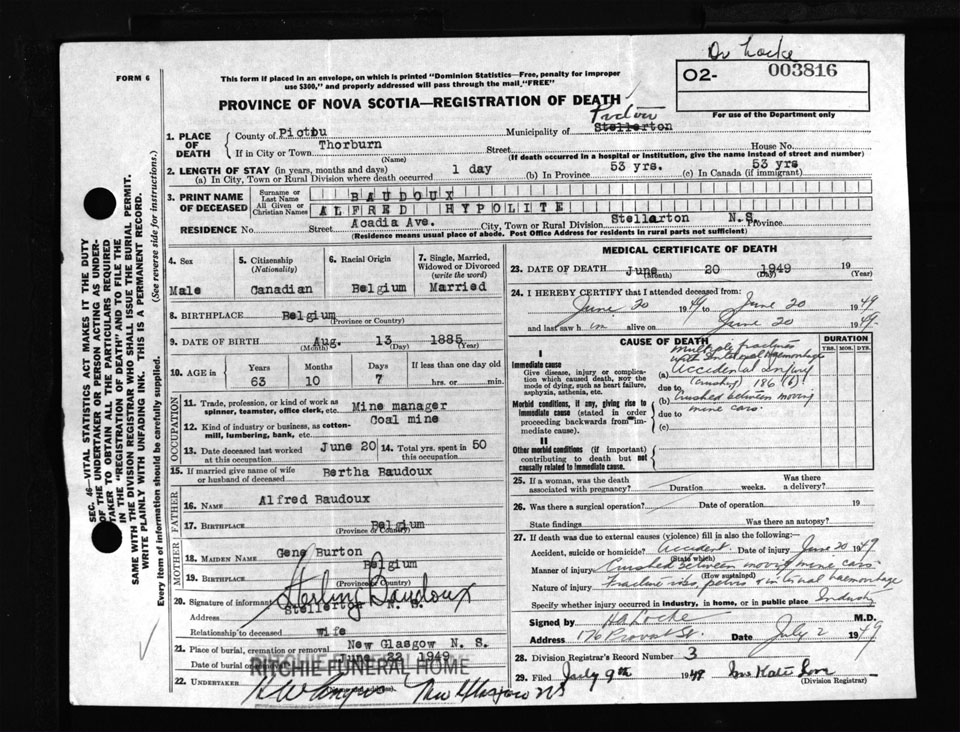 Dr Locke
FORM 6
This form if placed in an envelope, on which is printed "Dominion Statistics—Free, penalty for improper
use $300," and property addressed will pass through the mail "FREE"
O2- 003816
For use of the Department only
PROVINCE OF NOVA SCOTIA—REGISTRATION OF DEATH
Pictou
1. PLACE OF DEATH County of Pictou Municipality of Stellerton
If in City or Town Thorburn Street House No.
(Name) (If death occurred in a hospital or institution, give the name instead of street and number)
2. LENGTH OF STAY (in years, months and days) 1 day 53 yrs. 53 yrs
(a) In City, Town or Rural Division where death occurred (b) In Province (c) In Canada (if immigrant)
3. PRINT NAME OF DECEASED Surname or Last Name BAUDOUX
All Given or Christian Names ALFRED HYPOLITE
RESIDENCE No. Street Acadia Ave. City, Town or Rural Division Stellarton N.S. Province
(Residence means usual place of abode. Post Office Address for residents in rural parts not sufficient)
4. Sex Male
5. Citizenship (Nationality) Canadian
6. Racial Origin Belgium
7. Single, Married, Widowed or Divorced (write the word) Married
8. BIRTHPLACE Belgium
(Province or Country)
9. DATE OF BIRTH Aug. 13 1885
(Month) (Day) (Year)
10. AGE in Years Months Days If less than one day old
63 10 7 hrs. or min.
OCCUPATION
11. Trade, profession, or kind of work as Mine manager
spinner, teamster, office clerk, etc.
12. Kind of industry or business, as cotton- Coal mine
mill, lumbering, bank, etc.
13. Date deceased last worked at this occupation June 20 14. Total yrs. spent in this occupation 50
15. If married give name of wife or husband of deceased Bertha Baudoux
FATHER
16. NAME Alfred Baudoux
17. BIRTHPLACE Belgium
(Province or Country)
MOTHER
18. MAIDEN NAME Gene Burton
19. BIRTHPLACE Belgium
(Province or Country)
20. Signature of informant Sterling Baudoux
Address Stellerton N. S.
Relationship to deceased wife
21. Place of burial, cremation or removal New Glasgow N. S.
Date of burial or removal June 22 1949
RITCHIE FUNERAL HOME
22. UNDERTAKER New Glasgow NS
MEDICAL CERTIFICATE OF DEATH
23. DATE OF DEATH June 20 1949 19
(Month) (Day) (Year)
24. I HEREBY CERTIFY that I attended deceased from:
June 20 1949 to June 20 1949
and last saw h im alive on June 20 1949
CAUSE OF DEATH DURATION
YRS. MOS. DYS.
I
Immediate cause
Give disease, injury or complication which caused death, not the mode of dying, such as heart failure, asphyxia, asthenia, etc.
Multiple fractures
with Internal Haemorrhage
(a) Accidental Injury
due to (crushing) 186 (6)
Morbid conditions, if any, giving rise to immediate cause (stated in order proceeding backwards from immediate cause).
(b) Crushed between moving
due to mine cars.
(c)
II
Other morbid conditions (if important) contributing to death but not causally related to immediate cause.
25. If a woman, was the death associated with pregnancy? Duration weeks. Was there a delivery?
26. Was there a surgical operation? Date of operation 19
State findings Was there an autopsy?
27. If death was due to external causes (violence) fill in also the following:—
Accident, suicide or homicide? Accident. Date of injury June 20 1949
(State which)
Manner of injury Crushed between moving mine cars.
(How sustained)
Nature of injury Fracture ribs, pelvis & internal haemorrhage
Specify whether injury occurred in industry, in home, or in public place Industry
Signed by HA Locke M.D.
Address 176 Provost St. Date July 2 1949
28. Division Registrar's Record Number 3
29. Filed July 9th 1949 Mrs Kate Love
(Division Registrar)
SEC. 46—VITAL STATISTICS ACT MAKES IT THE DUTY
OF THE UNDERTAKER OR PERSON ACTING AS UNDER-
TAKER TO OBTAIN ALL THE PARTICULARS REQUIRED
IN THE "REGISTRATION OF DEATH" AND TO FILE THE
SAME WITH THE DIVISION REGISTRAR WHO SHALL ISSUE THE BURIAL PERMIT.
WRITE PLAINLY WITH UNFADING INK. THIS IS A PERMANENT RECORD.
Every item of information should be carefully supplied. (See reverse side for instructions.)